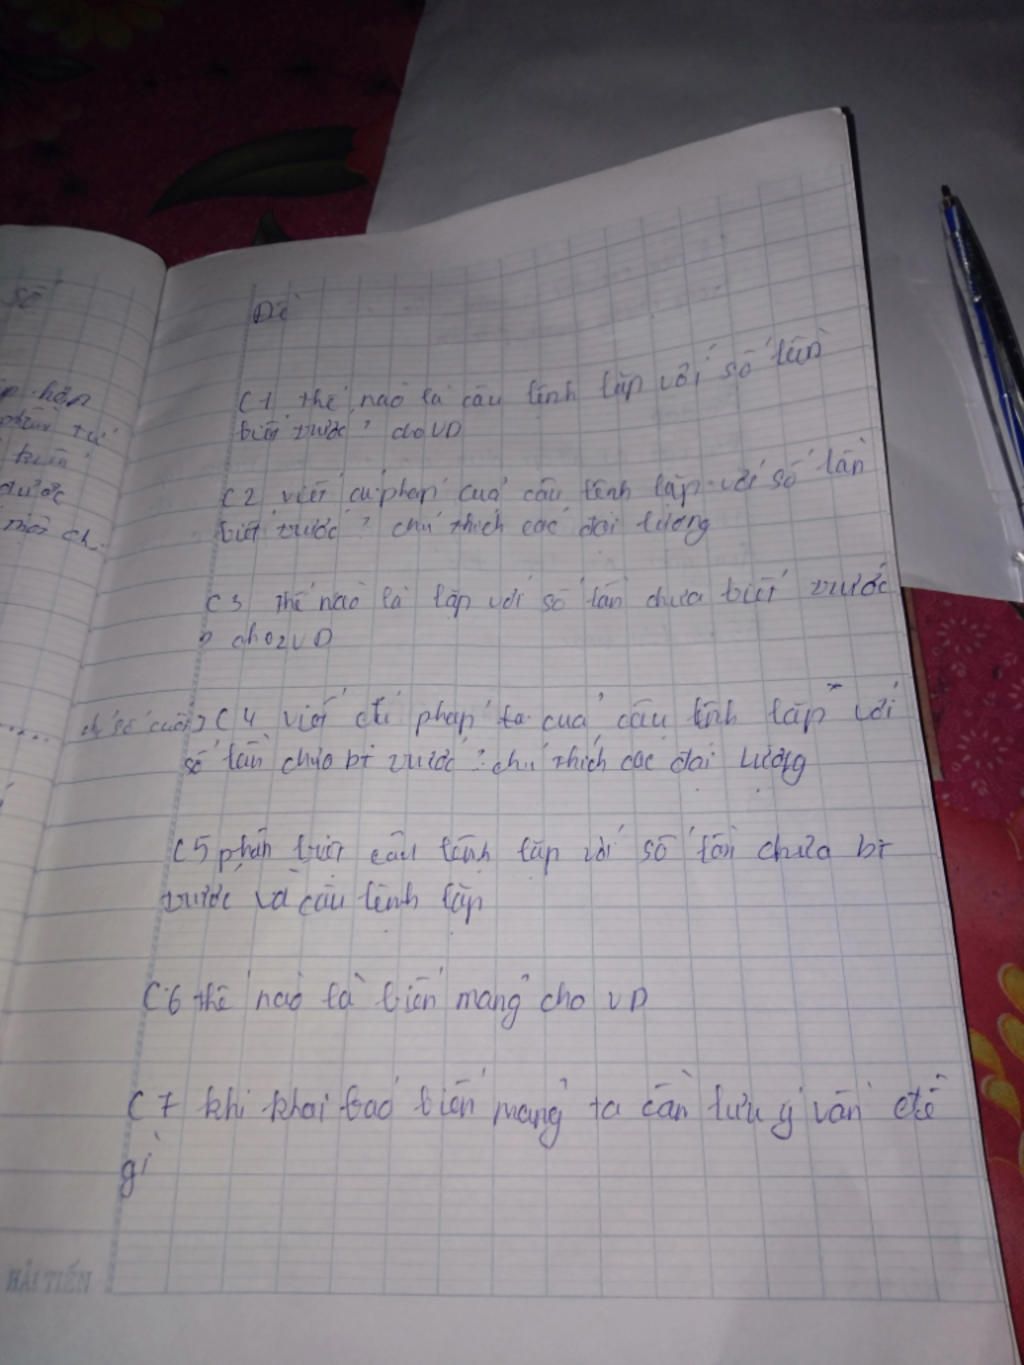 số
hợp
phần tử
được
Đề
C1 thế nào là câu lệnh lặp với số lần
biết trước? cho VD
C2 viết cú pháp của câu lệnh lặp với số lần
biết trước? chú thích các đại lượng
C3 thế nào là lặp với số lần chưa biết trước
? cho 2 VD
C4 viết cú pháp của câu lệnh lặp với
số lần chưa bt trước? chú thích các đại lượng
C5 phân biệt câu lệnh lặp với số lần chưa bt
trước và câu lệnh lặp
C6 thế nào là biến mảng cho VD
C7 khi khai báo biến mảng ta cần lưu ý vấn đề
gì
HẢI TIẾN